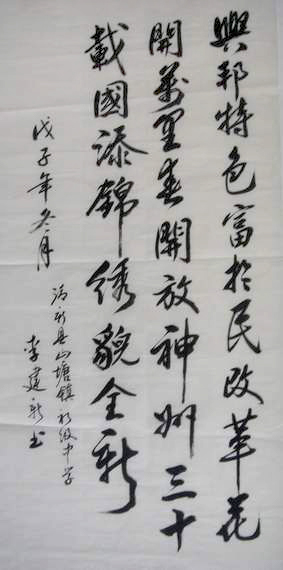 興邦特色富於民改革花
開萬里春開放神州三十
載國添錦绣貌全新
戊子年冬月
山塘镇初级中学
李建新书